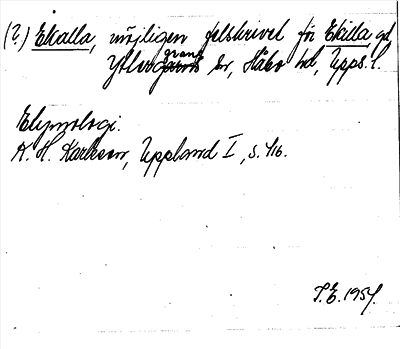 (?) Ekalla, möjligen felskrivet för Ekilla gd
Ytlvoggrans sn, Håbo hd, Upps. l.
Etymologi.
K. H. Karlsson, Uppland I, s. 416.
T.E. 1954.